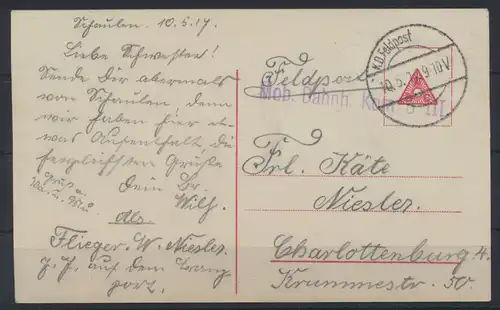 Schaulen, 10.5.17.
Liebe Schwester!
Sende Dir abermals
vom Schaulen denn
wir haben hier et-
was Aufenthalt, die
herzlichsten Grüße
Dein Br.
Wilh.
Gruß a.
Va. u. Mu.
Abs.
Flieger W. Niesler
z. Z. auf dem Trans
port.
K.D. Feldpost
10.5. 9-10V
Feldpost
Mob. Bahnh. Kom III.
Frl. Käte
Niesler.
Charlottenburg 4.
Krummestr. 50.